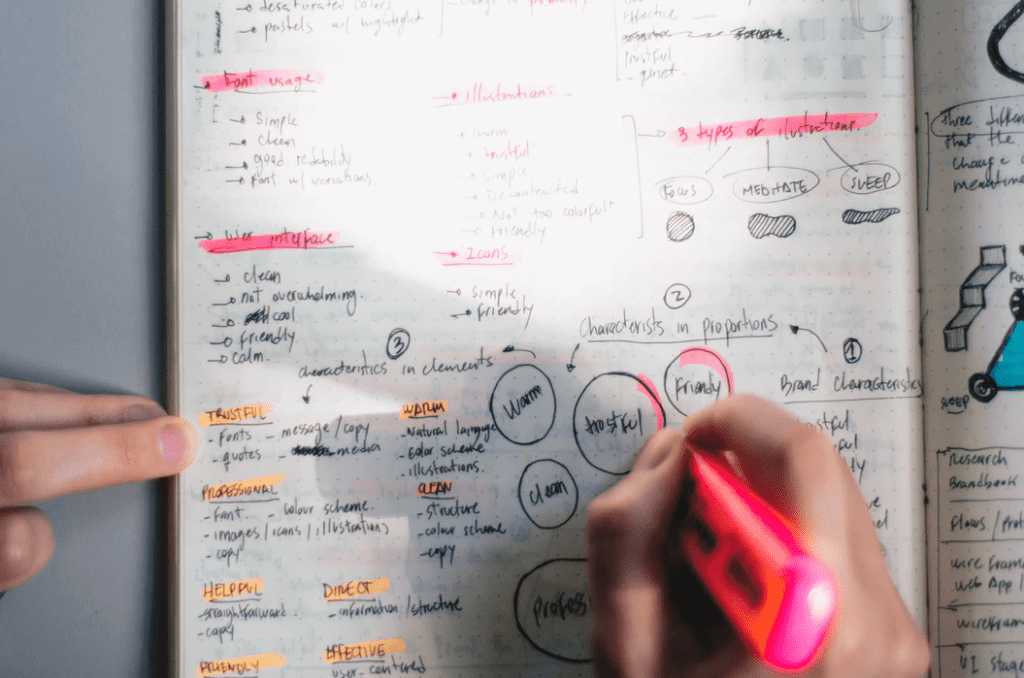 desaturated colors
pastels w/ highlights
Effective
trustful
- quiet
Font usage
Simple
clean
good redability
Font w/ variations
Illustrations
warm
trustful
simple
Decontracted
Not too colorful
friendly
Icons
simple
friendly
3 types of ilustrations.
FOCUS
MEDITATE
SLEEP
User interface
clean
not overwhelming.
cool
friendly
calm.
3
characteristics in elements
2
Characterists in proportions
1
Brand characteristics
TRUSTFUL
- Fonts
- quotes
- message / copy
media
WARM
- Natural language
- color scheme
- illustrations.
PROFESSIONAL
- Font
- colour scheme.
- images / icons / illustrations
- copy
CLEAN
- structure
- colour scheme
- copy
HELPFUL
- straightforward
- copy
DIRECT
- information / structure
FRIENDLY
EFFECTIVE
user-centered
Warm
trostful
Friendly
clean
profess
three differ
that the
change
meantime
SLEEP
Research
Brandbook
Flows / Prot
wire fram
Web App /
wirefram
UI stage